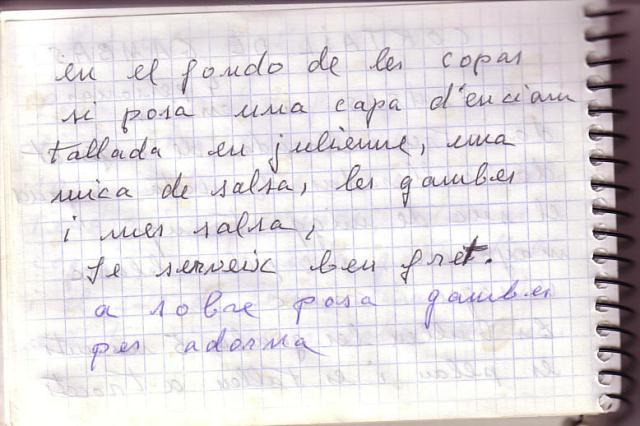 en el fondo de les copas
si posa una capa d'enciam
tallada en julienne, una
mica de salsa, les gambes
i mes salsa,
Se serveix ben fret.
a sobre posa gambes
per adorna